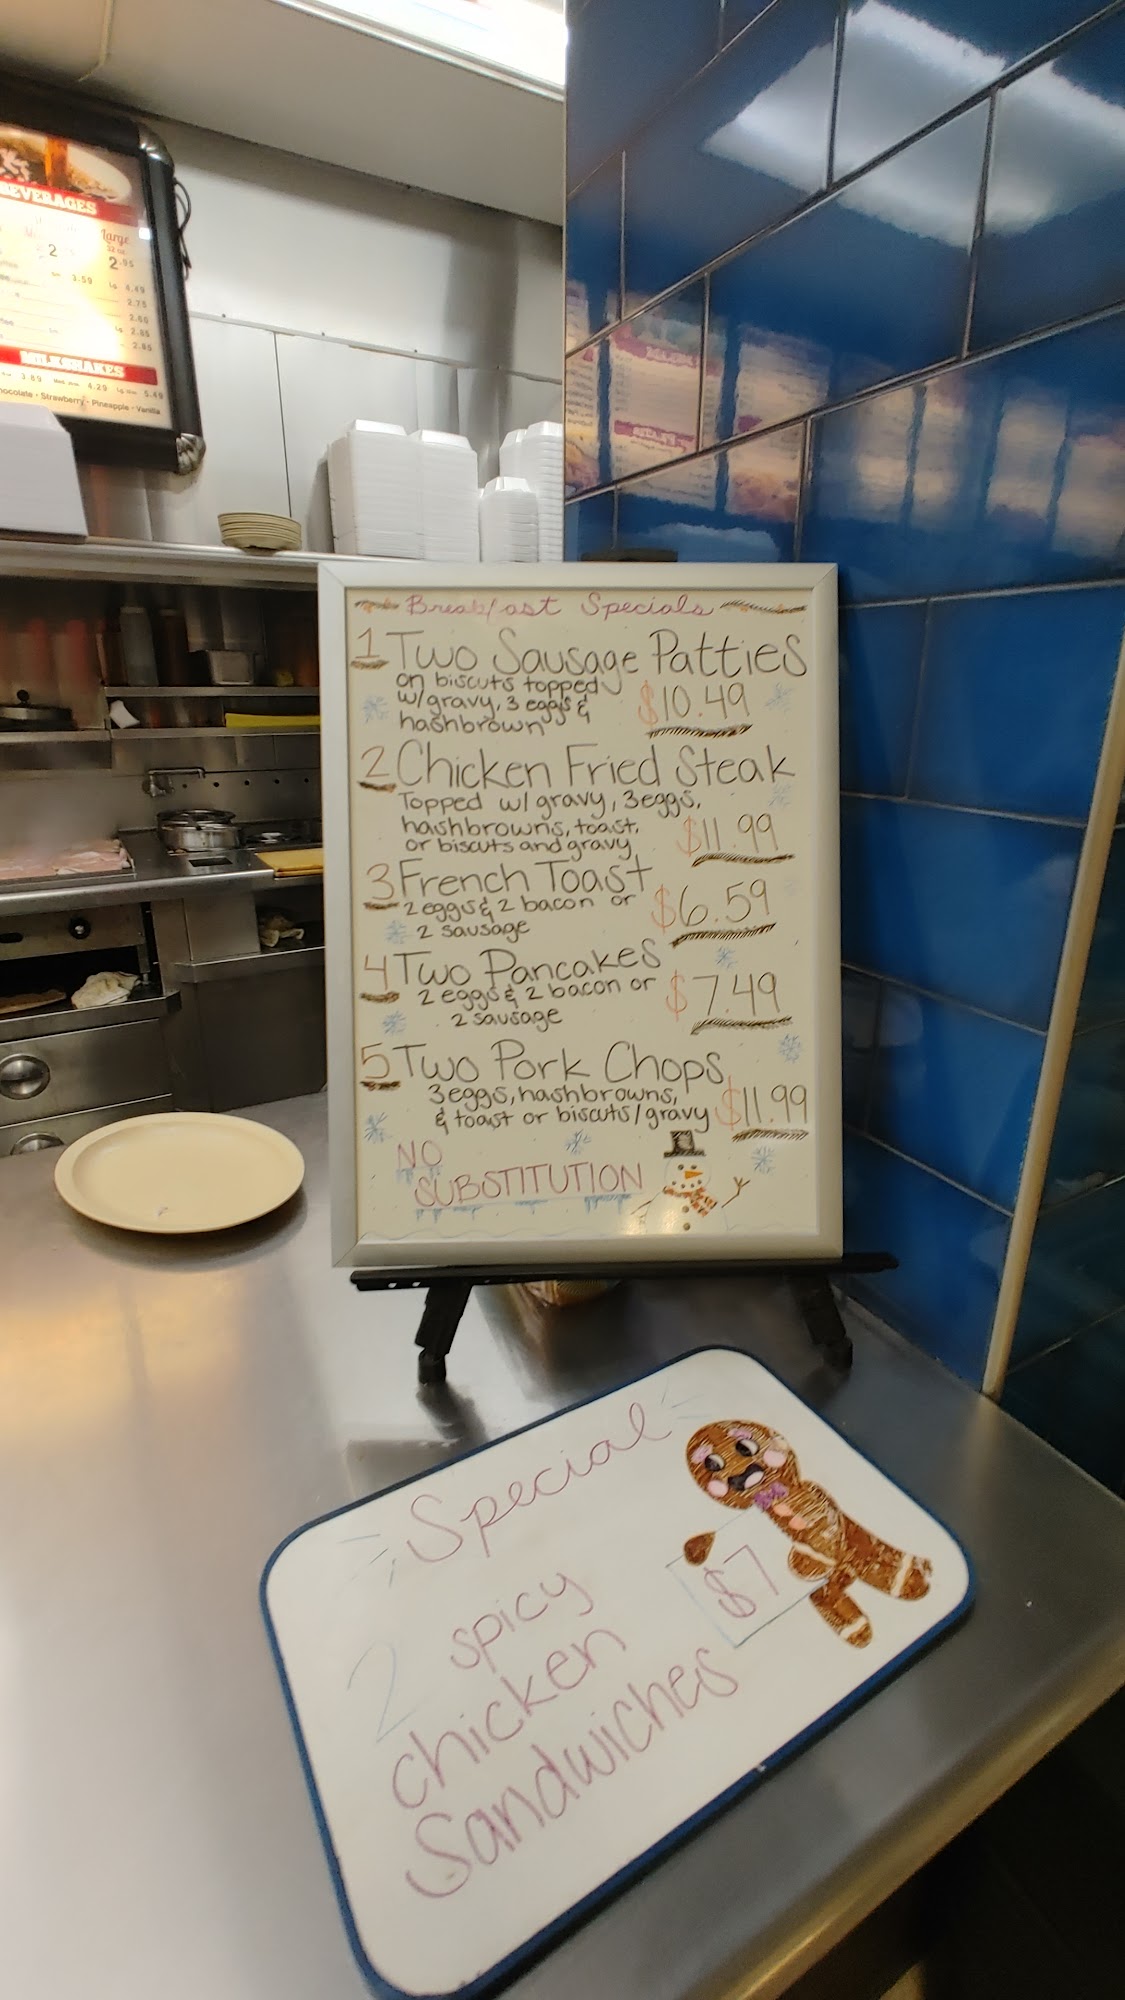 BEVERAGES
Large
32 oz.
2
2.95
3.59 Lg 4.49
2.75
Lg 2.85
2.85
MILKSHAKES
3.89 Med 4.29 Lg 5.49
Strawberry - Pineapple - Vanilla
Breakfast Specials
1 Two Sausage Patties
on biscuts topped
w/gravy, 3 eggs &
hashbrown
$10.49
2 Chicken Fried Steak
Topped w/ gravy, 3eggs,
hashbrowns, toast,
or biscuts and gravy
$11.99
3 French Toast
2 eggs & 2 bacon or
2 sausage
$6.59
4 Two Pancakes
2 eggs & 2 bacon or
2 sausage
$7.49
5 Two Pork Chops
3eggs, hashbrowns,
& toast or biscuts/gravy
$11.99
NO
SUBSTITUTION
Special
2 spicy
chicken
Sandwiches
$7